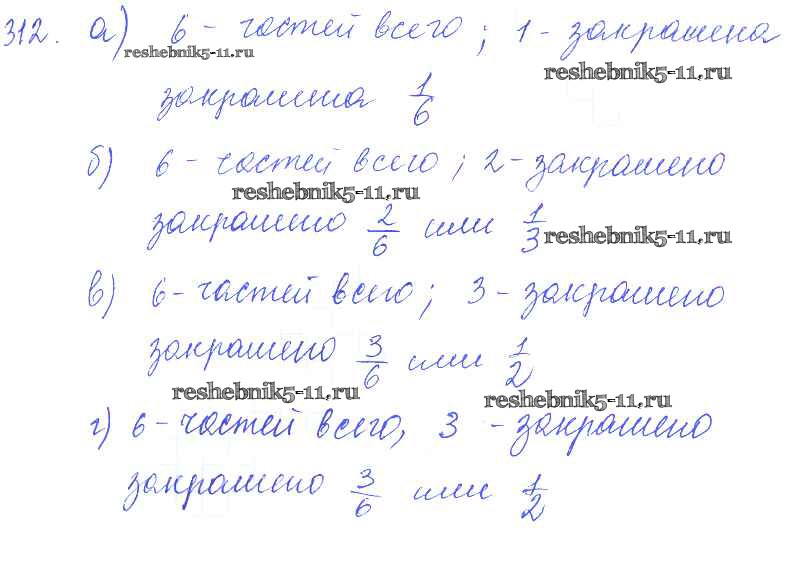 312. а) 6 - частей всего ; 1 - закрашена
reshebnik5-11.ru
reshebnik5-11.ru
закрашена 1/6
б) 6 - частей всего ; 2 - закрашено
reshebnik5-11.ru
закрашено 2/6 или 1/3
reshebnik5-11.ru
в) 6 - частей всего ; 3 - закрашено
закрашено 3/6 или 1/2
reshebnik5-11.ru
reshebnik5-11.ru
г) 6 - частей всего, 3 - закрашено
закрашено 3/6 или 1/2